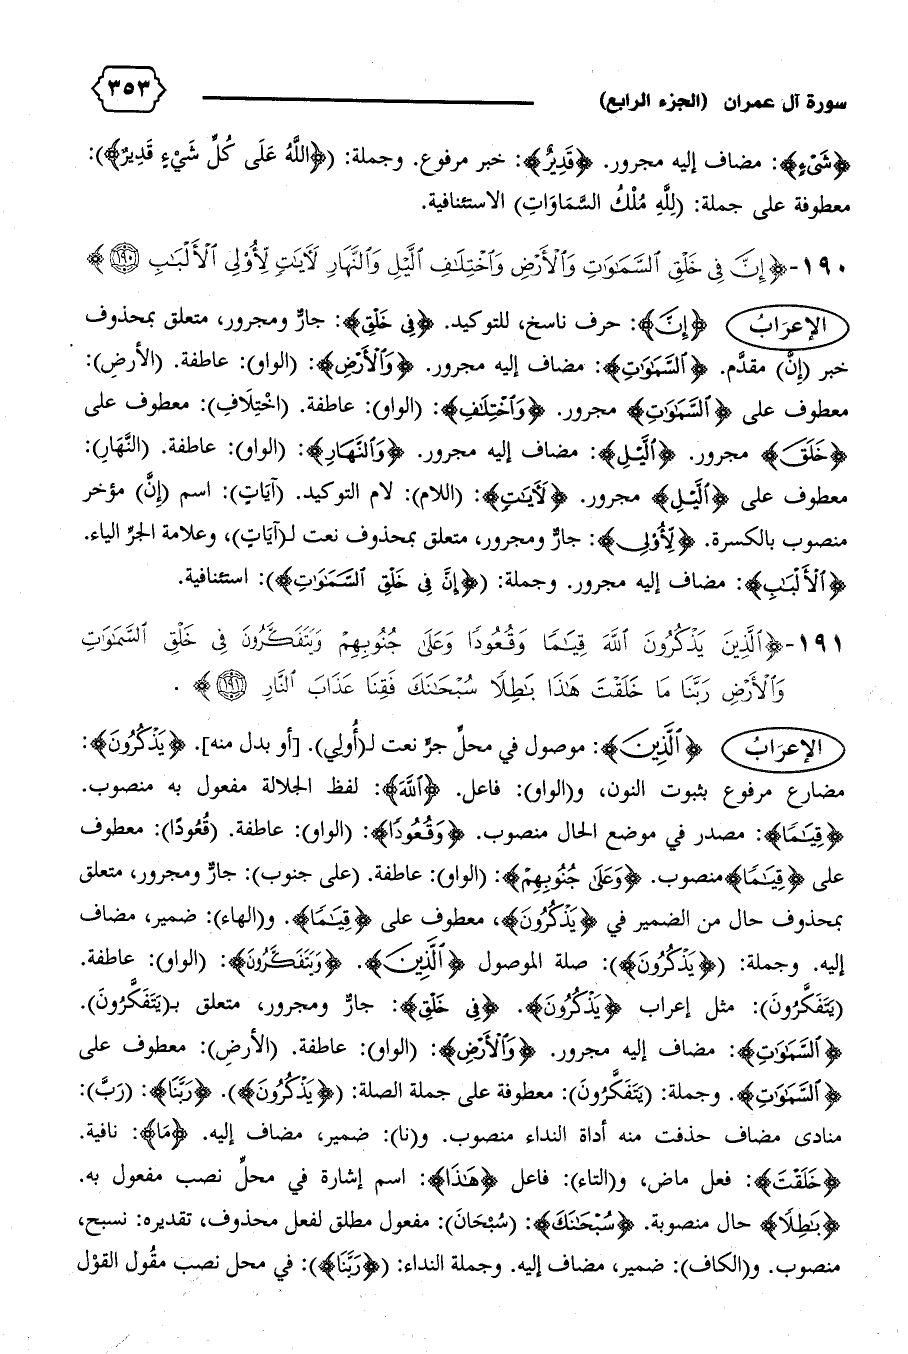 سورة آل عمران (الجزء الرابع) ٣٥٣
﴿شَىْءٍ﴾: مضاف إليه مجرور. ﴿قَدِيرٌ﴾: خبر مرفوع. وجملة: (﴿اللَّهُ عَلَى كُلِّ شَيْءٍ قَدِيرٌ﴾):
معطوفة على جملة: (لِلَّهِ مُلْكُ السَّمَاوَاتِ) الاستئنافية.
١٩٠-﴿إِنَّ فِي خَلْقِ ٱلسَّمَٰوَٰتِ وَٱلْأَرْضِ وَٱخْتِلَٰفِ ٱلَّيْلِ وَٱلنَّهَارِ لَآيَٰتٍ لِّأُو۟لِى ٱلْأَلْبَٰبِ ١٩٠﴾
الإعرَابُ ﴿إِنَّ﴾: حرف ناسخ، للتوكيد. ﴿فِي خَلْقِ﴾: جارٌّ ومجرور، متعلق بمحذوف
خبر (إِنَّ) مقدَّم. ﴿ٱلسَّمَٰوَٰتِ﴾: مضاف إليه مجرور. ﴿وَٱلْأَرْضِ﴾: (الواو): عاطفة. (الأرضِ):
معطوف على ﴿ٱلسَّمَٰوَٰتِ﴾ مجرور. ﴿وَٱخْتِلَٰفِ﴾: (الواو): عاطفة. (اخْتِلَافِ): معطوف على
﴿خَلْقِ﴾ مجرور. ﴿ٱلَّيْلِ﴾: مضاف إليه مجرور. ﴿وَٱلنَّهَارِ﴾: (الواو): عاطفة. (النَّهَارِ):
معطوف على ﴿ٱلَّيْلِ﴾ مجرور. ﴿لَآيَٰتٍ﴾: (اللام): لام التوكيد. (آيَاتٍ): اسم (إِنَّ) مؤخر
منصوب بالكسرة. ﴿لِّأُو۟لِى﴾: جارٌّ ومجرور، متعلق بمحذوف نعت لـ(آيَاتٍ)، وعلامة الجرِّ الياء.
﴿ٱلْأَلْبَٰبِ﴾: مضاف إليه مجرور. وجملة: (﴿إِنَّ فِي خَلْقِ ٱلسَّمَٰوَٰتِ﴾): استئنافية.
١٩١-﴿ٱلَّذِينَ يَذْكُرُونَ ٱللَّهَ قِيَٰمًا وَقُعُودًا وَعَلَىٰ جُنُوبِهِمْ وَيَتَفَكَّرُونَ فِي خَلْقِ ٱلسَّمَٰوَٰتِ
وَٱلْأَرْضِ رَبَّنَا مَا خَلَقْتَ هَٰذَا بَٰطِلًا سُبْحَٰنَكَ فَقِنَا عَذَابَ ٱلنَّارِ ١٩١﴾.
الإعرَابُ ﴿ٱلَّذِينَ﴾: موصول في محلِّ جرٍّ نعت لـ(أُولِي). [أو بدل منه]. ﴿يَذْكُرُونَ﴾:
مضارع مرفوع بثبوت النون، و(الواو): فاعل. ﴿ٱللَّهَ﴾: لفظ الجلالة مفعول به منصوب.
﴿قِيَٰمًا﴾: مصدر في موضع الحال منصوب. ﴿وَقُعُودًا﴾: (الواو): عاطفة. (قُعُودًا): معطوف
على ﴿قِيَٰمًا﴾منصوب. ﴿وَعَلَىٰ جُنُوبِهِمْ﴾: (الواو): عاطفة. (على جنوب): جارٌّ ومجرور، متعلق
بمحذوف حال من الضمير في ﴿يَذْكُرُونَ﴾، معطوف على ﴿قِيَٰمًا﴾. و(الهاء): ضمير، مضاف
إليه. وجملة: (﴿يَذْكُرُونَ﴾): صلة الموصول ﴿ٱلَّذِينَ﴾. ﴿وَيَتَفَكَّرُونَ﴾: (الواو): عاطفة.
(يَتَفَكَّرُونَ): مثل إعراب ﴿يَذْكُرُونَ﴾. ﴿فِي خَلْقِ﴾: جارٌّ ومجرور، متعلق بـ(يَتَفَكَّرُونَ).
﴿ٱلسَّمَٰوَٰتِ﴾: مضاف إليه مجرور. ﴿وَٱلْأَرْضِ﴾: (الواو): عاطفة. (الأرضِ): معطوف على
﴿ٱلسَّمَٰوَٰتِ﴾. وجملة: (يَتَفَكَّرُونَ): معطوفة على جملة الصلة: (﴿يَذْكُرُونَ﴾). ﴿رَبَّنَا﴾: (رَبَّ):
منادى مضاف حذفت منه أداة النداء منصوب. و(نا): ضمير، مضاف إليه. ﴿مَا﴾: نافية.
﴿خَلَقْتَ﴾: فعل ماض، و(التاء): فاعل ﴿هَٰذَا﴾: اسم إشارة في محلِّ نصب مفعول به.
﴿بَٰطِلًا﴾ حال منصوبة. ﴿سُبْحَٰنَكَ﴾: (سُبْحَانَ): مفعول مطلق لفعل محذوف، تقديره: نسبح،
منصوب. و(الكاف): ضمير، مضاف إليه. وجملة النداء: (﴿رَبَّنَا﴾): في محل نصب مقُول القوْل